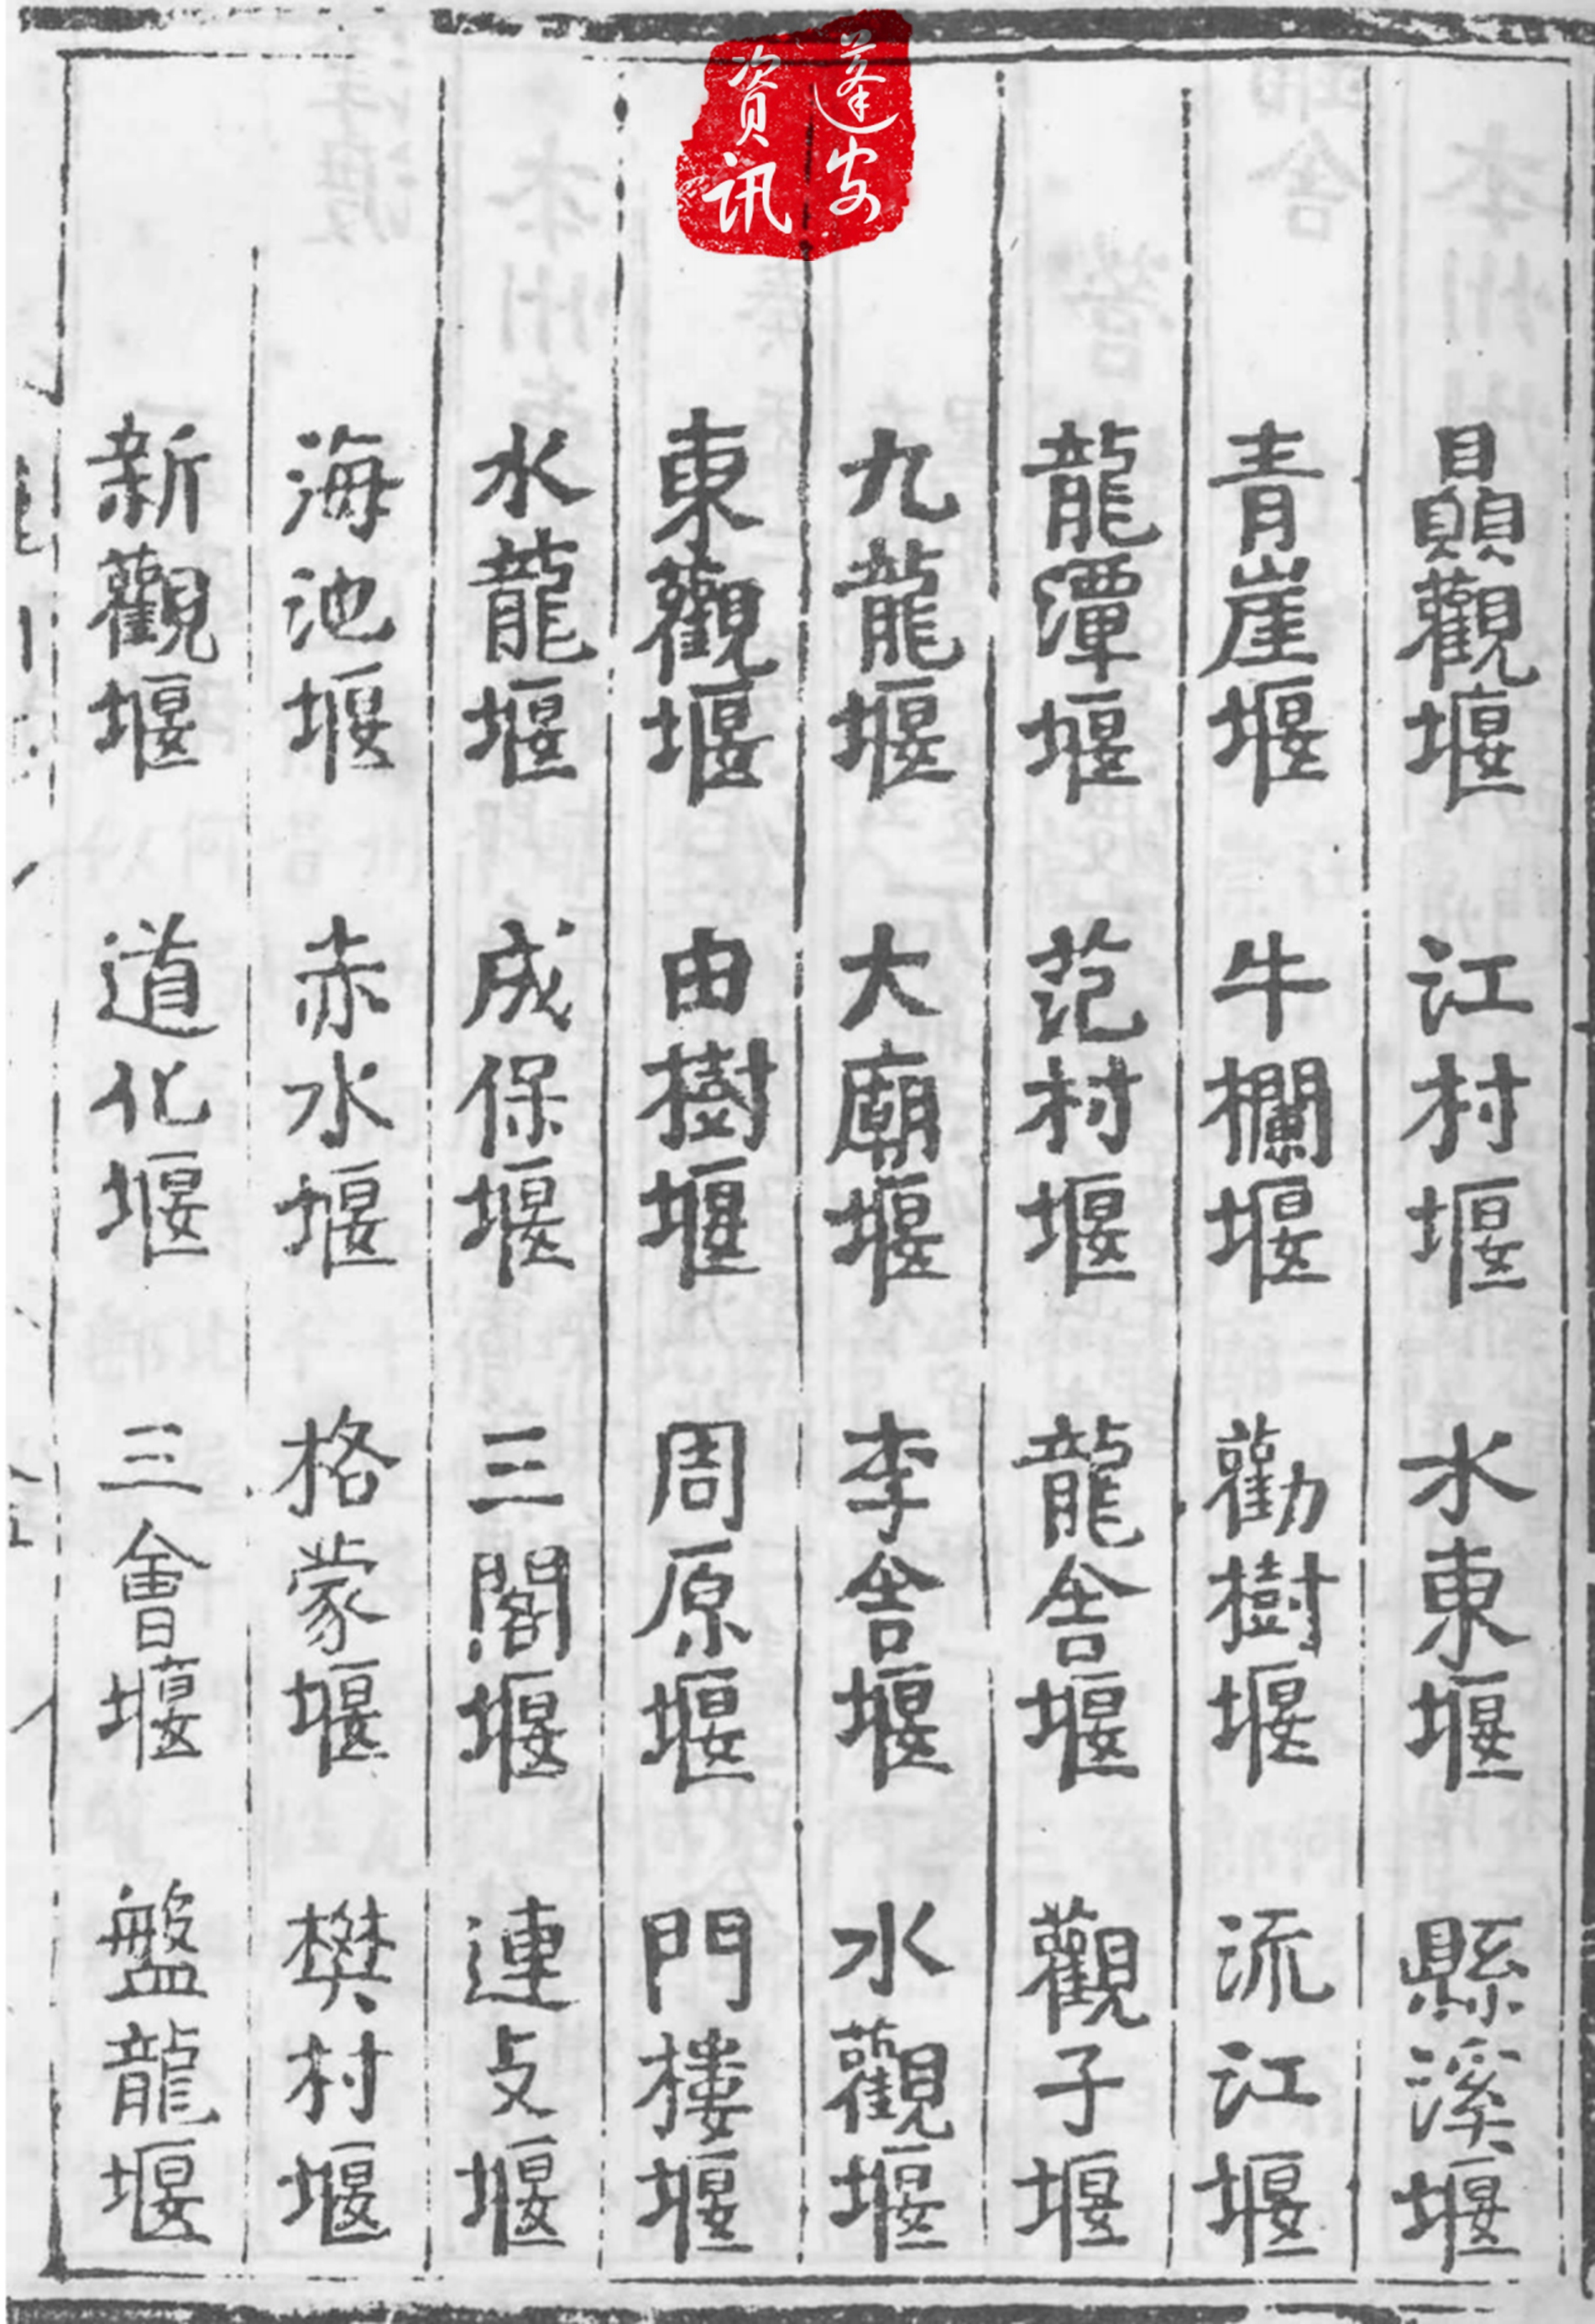 蓬安
資訊
觀堰 江村堰 水東堰 縣溪堰
青崖堰 牛欄堰 勸樹堰 流江堰
龍潭堰 范村堰 龍舍堰 觀子堰
九龍堰 大廟堰 李舍堰 水觀堰
東觀堰 由樹堰 周原堰 門樓堰
水龍堰 成保堰 三閣堰 連堰
海池堰 赤水堰 格蒙堰 樊村堰
新觀堰 道化堰 三會堰 盤龍堰